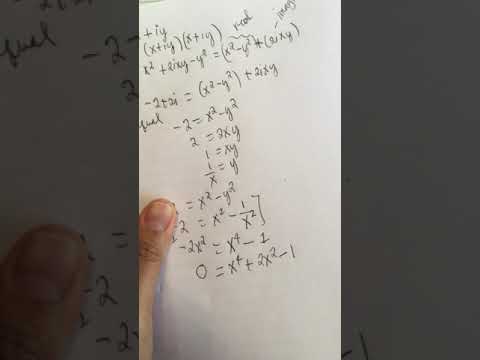 real imag
+iy
(x+iy)(x+iy)
x² + 2ixy - y² = (x² - y²) + (2ixy)
qual
-2+2i = (x² - y²) + 2ixy
qual
-2 = x² - y²
2 = 2xy
1 = xy
1/x = y
= x² - y²
2 = x² - 1/x²]
-2x² = x⁴ - 1
0 = x⁴ + 2x² - 1